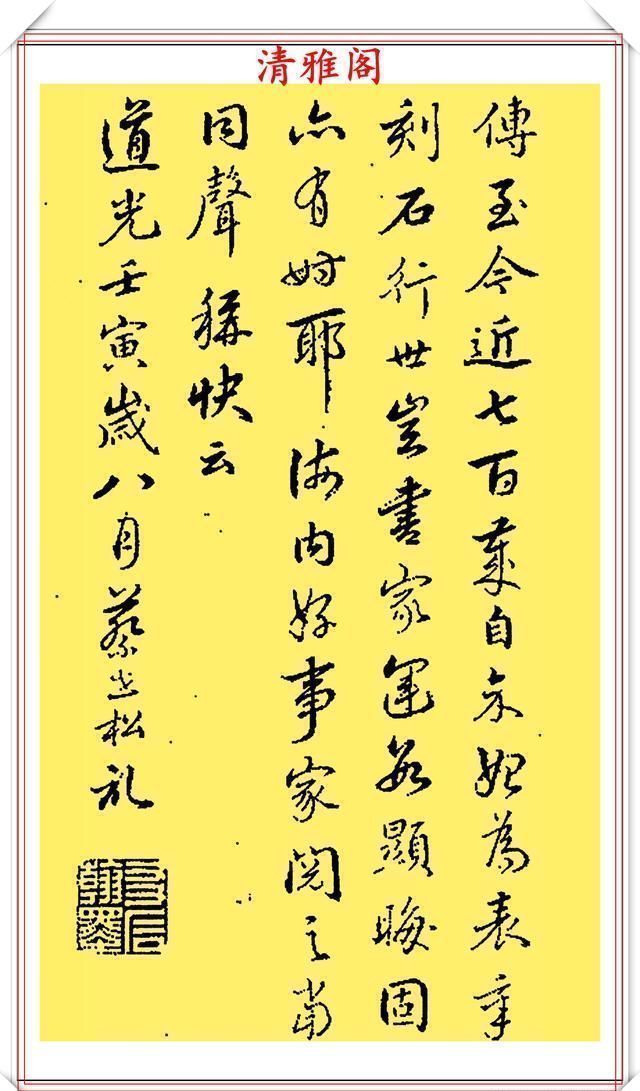 清雅阁
傳至今近七百載自余始為表章
刻石行世豈書家運數顯晦固
亦有時耶海内好事家閱之當
同聲稱快云
道光壬寅歲八月蔡世松跋